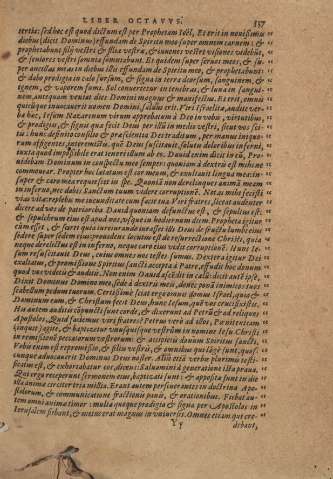 LIBER OCTAVVS. 357
tertia: sed hoc est quod dictum est per Prophetam Ioël, Et erit in nouißimis
diebus (dicit Dominus) effundam de Spiritu meo super omnem carnem: &
prophetabunt filij vestri & filiæ vestræ, & iuuenes vestri visiones videbunt,
& seniores vestri somnia somniabunt. Et quidem super seruos meos, & su-
per ancillas meas in diebus illis effundam de Spiritu meo, & prophetabunt:
& dabo prodigia in cælo sursum, & signa in terra deorsum, sanguinem, &
ignem, & vaporem fumi. Sol conuertetur in tenebras, & luna in sangui-
nem, antequam veniat dies Domini magnus & manifestus. Et erit, omnis
quicunque inuocauerit nomen Domini, saluus erit. Viri Israelitæ, audite ver-
ba hæc, Iesum Nazarenum virum approbatum à Deo in vobis, virtutibus,
& prodigijs, & signis quæ fecit Deus per illum in medio vestri, sicut vos sci-
tis: hunc definito consilio & præscientia Dei traditum, per manus iniquo-
rum affigentes, interemistis. quē Deus suscitauit, solutis doloribus inferni,
iuxta quod impoßibile erat teneri illum ab eo. Dauid enim dicit in eū, Pro-
uidebam Dominum in conspectu meo semper: quoniam à dextris est mihi ne
commouear. Propter hoc lætatum est cor meum, & exultauit lingua mea: in-
super & caro mea requiescet in spe. Quoniā non derelinques animā meam
in inferno, nec dabis Sanctum tuum videre corruptionē. Notas mihi fecisti
vias vitæ: replebis me iucunditate cum facie tua. Viri fratres, liceat audenter
dicere ad vos de patriarcha Dauid: quoniam defunctus est, & sepultus est:
& sepulchrum eius est apud nos, vsque in hodiernum diem. Propheta igitur
cum esset, & sciret quia iureiurando iurasset illi Deus de fructu lumbi eius
sedere super sedem eius: prouidens locutus est de resurrectione Christi, quia
neque derelictus est in inferno, neque caro eius vidit corruptionē. Hunc Ie-
sum resuscitauit Deus, cuius omnes nos testes sumus. Dextera igitur Dei
exaltatus, & promißione Spiritus sancti accepta à Patre, effudit hoc donum
quod vos videtis & auditis. Non enim Dauid ascēdit in cælū: dicit autē ipse,
Dixit Dominus Domino meo, sede à dextris meis, donec ponā inimicos tuos
scabellum pedum tuorum. Certißimè sciat ergo omnis domus Israel, quia &
Dominum eum, & Christum fecit Deus hunc Iesum, quē vos crucifixistis.
His autem auditis cōpuncti sunt corde, & dixerunt ad Petrū & ad reliquos
Apostolos, Quid faciemus viri fratres? Petrus verò ad illos, Pœnitentiam
(inquit) agite, & baptizetur vnusquisque vestrûm in nomine Iesu Christi
in remißionē peccatorum vestrorum: & accipietis donum Spiritus sancti.
Vobis enim est repromißio, & filijs vestris, & omnibus qui lōgè sunt, quos-
cunque aduocauerit Dominus Deus noster. Alijs etiā verbis plurimis testi-
ficatus est, & exhortabatur eos, dicens: Saluamini à generatione ista praua.
Qui ergo receperunt sermonem eius, baptizati sunt: & appositæ sunt in die
illa animæ circiter tria millia. Erant autem perseuerantes in doctrina Apo-
stolorum, & communicatione fractionis panis, & orationibus. Fiebat au-
tem omni animæ timor: multa quoque prodigia & signa per Apostolos in
Ierusalem fiebant, & metus erat magnus in vniuersis. Omnes etiam qui cre-
Yy debant,